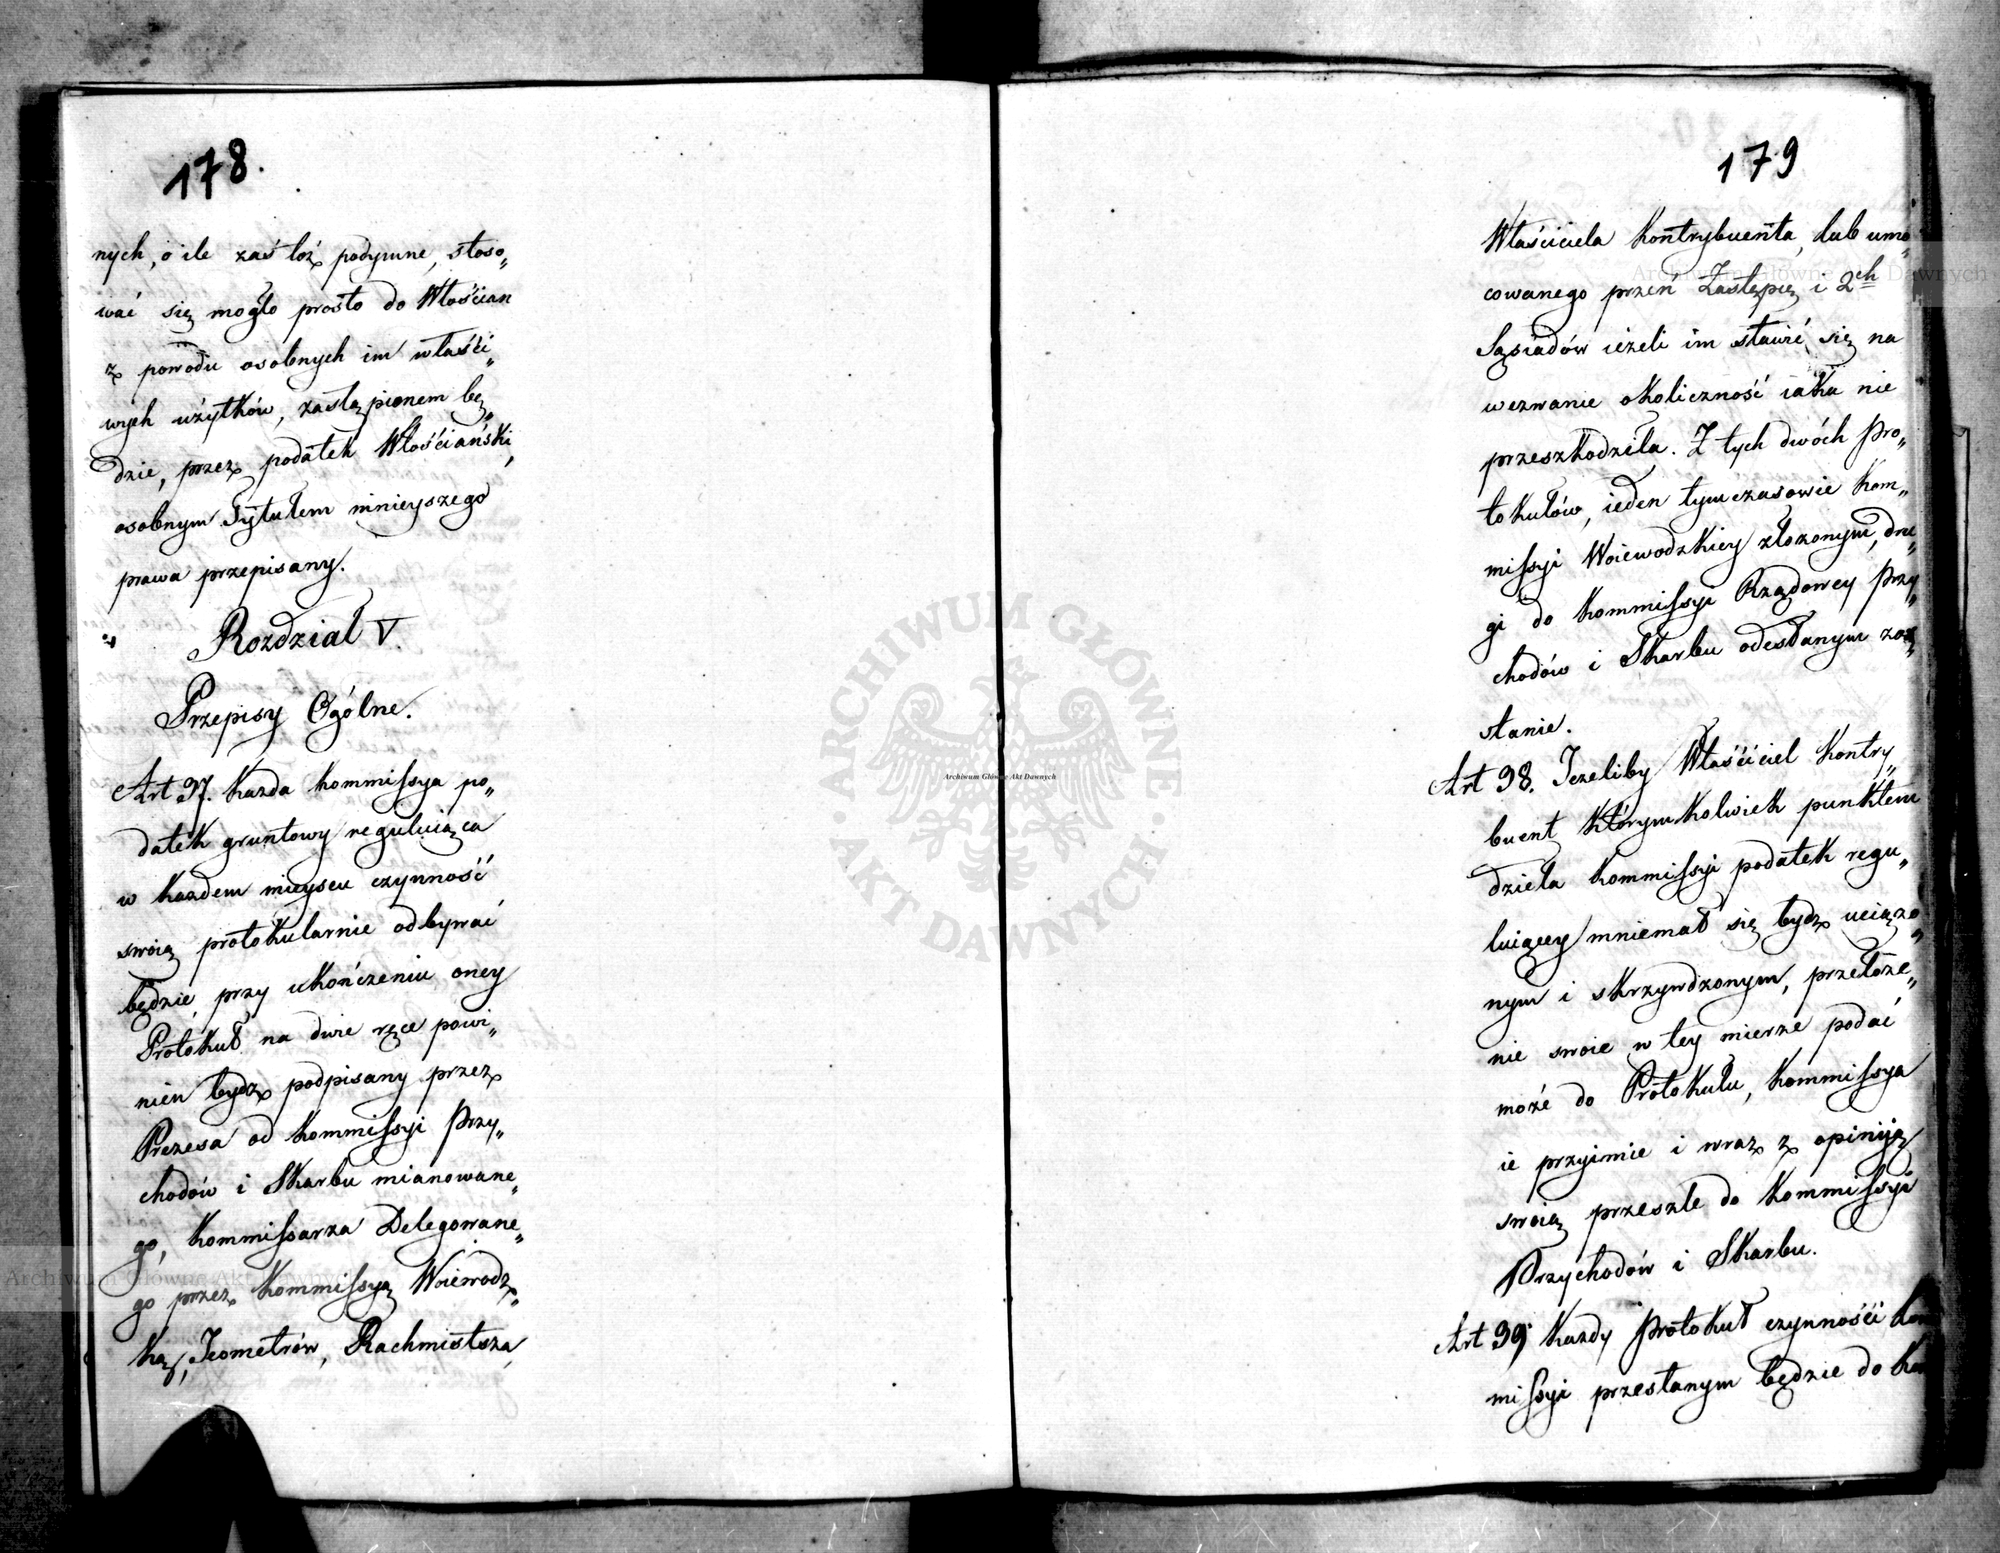 178.
nych, o ile zaś toż podymne, stoso„
wać się mogło prosto do Włościan
z powodu osobnych im właści„
wych użytków, zastąpionem bę„
dzie, przez podatek Włościański,
osobnym Tytułem ninieyszego
prawa przepisany.
Rozdział V.
Przepisy Ogólne.
Art 97. Każda Kommissya po„
datek gruntowy reguluiąca
w każdem mieyscu czynność
swoią protokularnie odbywać
będzie, przy ukończeniu oney
Protokuł na dwie ręce powi„
nien bydz podpisany przez
Prezesa od Kommissyi Przy„
chodów i Skarbu mianowane„
go, Kommissarza Delegowane„
go przez Kommissyą Woiewodz„
ką, Jeometrów, Rachmistrza,
179
Właściciela Kontrybuenta, lub umo„
cowanego przeń Zastępcę i 2ch
Sąsiadów ieżeli im stawić się na
wezwanie okoliczność iaka nie
przeszkodziła. Z tych dwóch Pro„
tokułów, ieden tymczasowie Kom„
missyi Woiewodzkiey złożonym, dru„
gi do Kommissyi Rządowey Przy„
chodów i Skarbu odesłanym zo„
stanie.
Art 98. Jeżeliby Właściciel Kontry„
buent którymkolwiek punktem
dzieła Kommissyi podatek regu„
luiącey mniemał się bydz uciążo„
nym i skrzywdzonym, przełoże„
nie swoie w tey mierze podać
może do Protokułu, Kommissya
ie przyimie i wraz z opiniią
swoią prześle do Kommissyi
Przychodów i Skarbu.
Art 99 Każdy Protokuł czynności Kom
missyi przesłanym będzie do Kom
Archiwum Główne Akt Dawnych
ARCHIWUM GŁÓWNE
AKT DAWNYCH
Archiwum Główne Akt Dawnych
Archiwum Główne Akt Dawnych